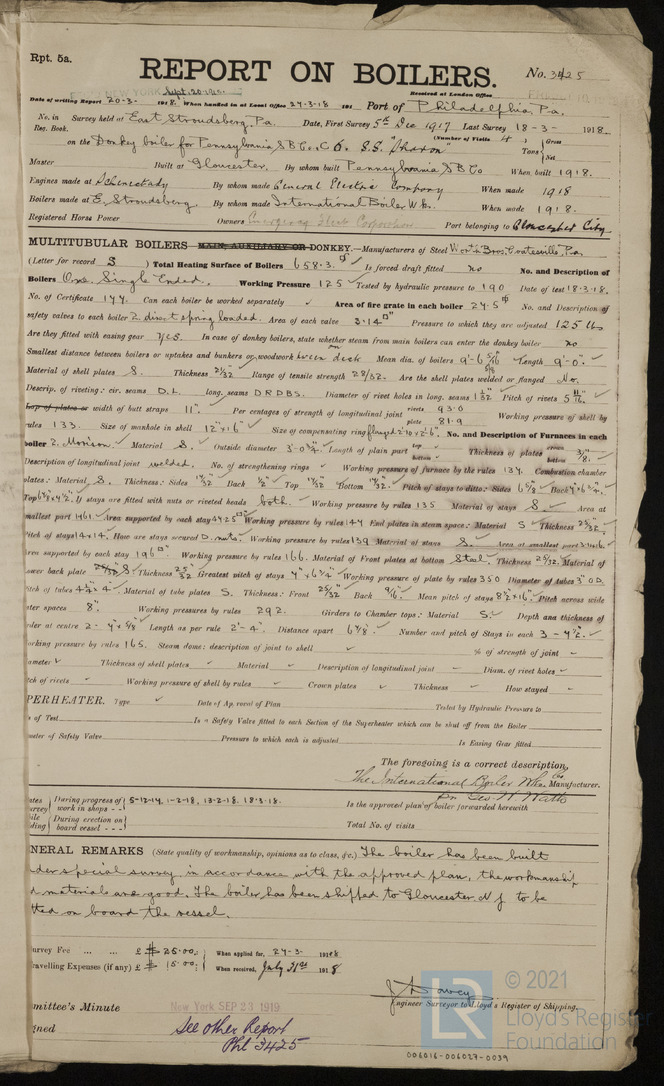 Rpt. 5a.
REPORT ON BOILERS.
No. 3425
Sept. 20. 1919
Received at London Office
Date of writing Report 20-3- 1918. When handed in at Local Office 27-3-18 191 Port of Philadelphia, Pa.
No. in Reg. Book. Survey held at East Stroudsberg, Pa. Date, First Survey 5th Dec 1917 Last Survey 18-3- 1918.
on the Donkey boiler for Pennsylvania S B Co. S.S. "Sharon" (Number of Visits 4) Tons { Gross Net
Master Built at Gloucester. By whom built Pennsylvania S B Co When built 1918.
Engines made at Schenectady By whom made General Electric Company When made 1918
Boilers made at E. Stroudsberg. By whom made International Boiler Wks. When made 1918.
Registered Horse Power Owners Port belonging to Gloucester City.
MULTITUBULAR BOILERS MAIN, AUXILIARY OR DONKEY.—Manufacturers of Steel Worth Bros. Coatesville, Pa.
(Letter for record S) Total Heating Surface of Boilers 658.3 Is forced draft fitted no No. and Description of
Boilers One. Single Ended. Working Pressure 125 Tested by hydraulic pressure to 190 Date of test 18.3.18.
No. of Certificate 144. Can each boiler be worked separately ✓ Area of fire grate in each boiler 24.5 No. and Description of
safety valves to each boiler 2. direct spring loaded. Area of each valve 3.14 Pressure to which they are adjusted 125 lb
Are they fitted with easing gear Yes. In case of donkey boilers, state whether steam from main boilers can enter the donkey boiler no
Smallest distance between boilers or uptakes and bunkers or woodwork deck Mean dia. of boilers 9'-6 5/16 Length 9'-0".
Material of shell plates S. Thickness 21/32 Range of tensile strength 28/32. Are the shell plates welded or flanged No.
Descrip. of riveting: cir. seams D.L. long. seams D R D B S. Diameter of rivet holes in long. seams 1 1/32 Pitch of rivets 5 11/16"
Lap of plates or width of butt straps 11". Per centages of strength of longitudinal joint rivets 93.0 plate 81.9 Working pressure of shell by
rules 133. Size of manhole in shell 12"x16" Size of compensating ring flanged No. and Description of Furnaces in each
boiler 2. Morison. Material S. Outside diameter 3'-0 3/4. Length of plain part top bottom Thickness of plates crown bottom 3/8.
Description of longitudinal joint welded. No. of strengthening rings ✓ Working pressure of furnace by the rules 134. Combustion chamber
plates: Material S. Thickness: Sides 17/32 Back 1/2 Top 17/32 Bottom 17/32. Pitch of stays to ditto: Sides 6 5/8 Back 7"x6 3/4.
Top If stays are fitted with nuts or riveted heads both. Working pressure by rules 135 Material of stays S. Area at
smallest part 1.461 Area supported by each stay 47.25 Working pressure by rules 144 End plates in steam space: Material S Thickness 25/32.
Pitch of stays 14x14. How are stays secured D. nuts. Working pressure by rules 139 Material of stays S. Area at smallest part
Area supported by each stay 196 Working pressure by rules 166. Material of Front plates at bottom Steel. Thickness 25/32. Material of
Lower back plate S. Thickness 25/32 Greatest pitch of stays 7"x6 3/4" Working pressure of plate by rules 350 Diameter of tubes 3" OD.
Pitch of tubes 4 1/4"x4" Material of tube plates S. Thickness: Front 25/32 Back 9/16. Mean pitch of stays 8 1/2x16". Pitch across wide
water spaces 8". Working pressures by rules 292. Girders to Chamber tops: Material S. Depth and thickness of
girder at centre 2 - 7"x5/8" Length as per rule 2'-4". Distance apart 6 7/8". Number and pitch of Stays in each 3 - 7 1/2".
Working pressure by rules 165. Steam dome: description of joint to shell ✓ % of strength of joint ✓
diameter ✓ Thickness of shell plates ✓ Material ✓ Description of longitudinal joint ✓ Diam. of rivet holes ✓
Pitch of rivets ✓ Working pressure of shell by rules ✓ Crown plates ✓ Thickness ✓ How stayed ✓
PERHEATER. Type ✓ Date of Approval of Plan Tested by Hydraulic Pressure to
of Test Is a Safety Valve fitted to each Section of the Superheater which can be shut off from the Boiler
meter of Safety Valve Pressure to which each is adjusted Is Easing Gear fitted
The foregoing is a correct description,
The International Boiler Wks. Co. Manufacturer.
Geo. W. Watts
During progress of work in shops - - 5-12-17, 1-2-18, 13-2-18, 18-3-18. Is the approved plan of boiler forwarded herewith
During erection on board vessel - - - Total No. of visits
NERAL REMARKS (State quality of workmanship, opinions as to class, &c.) The boiler has been built
under special survey, in accordance with the approved plan, the workmanship
and materials are good. The boiler has been shipped to Gloucester N J to be
fitted on board the vessel.
urvey Fee ... ... £ $ 25.00 : When applied for, 27-3- 1918
ravelling Expenses (if any) £ $ 15.00 : When received, July 31st 1918
Engineer Surveyor to Lloyd's Register of Shipping.
mmittee's Minute New York SEP 23 1919
gned See other Report
Phl 3425
© 2021
LR
Lloyd's Register
Foundation
006016-006027-0039